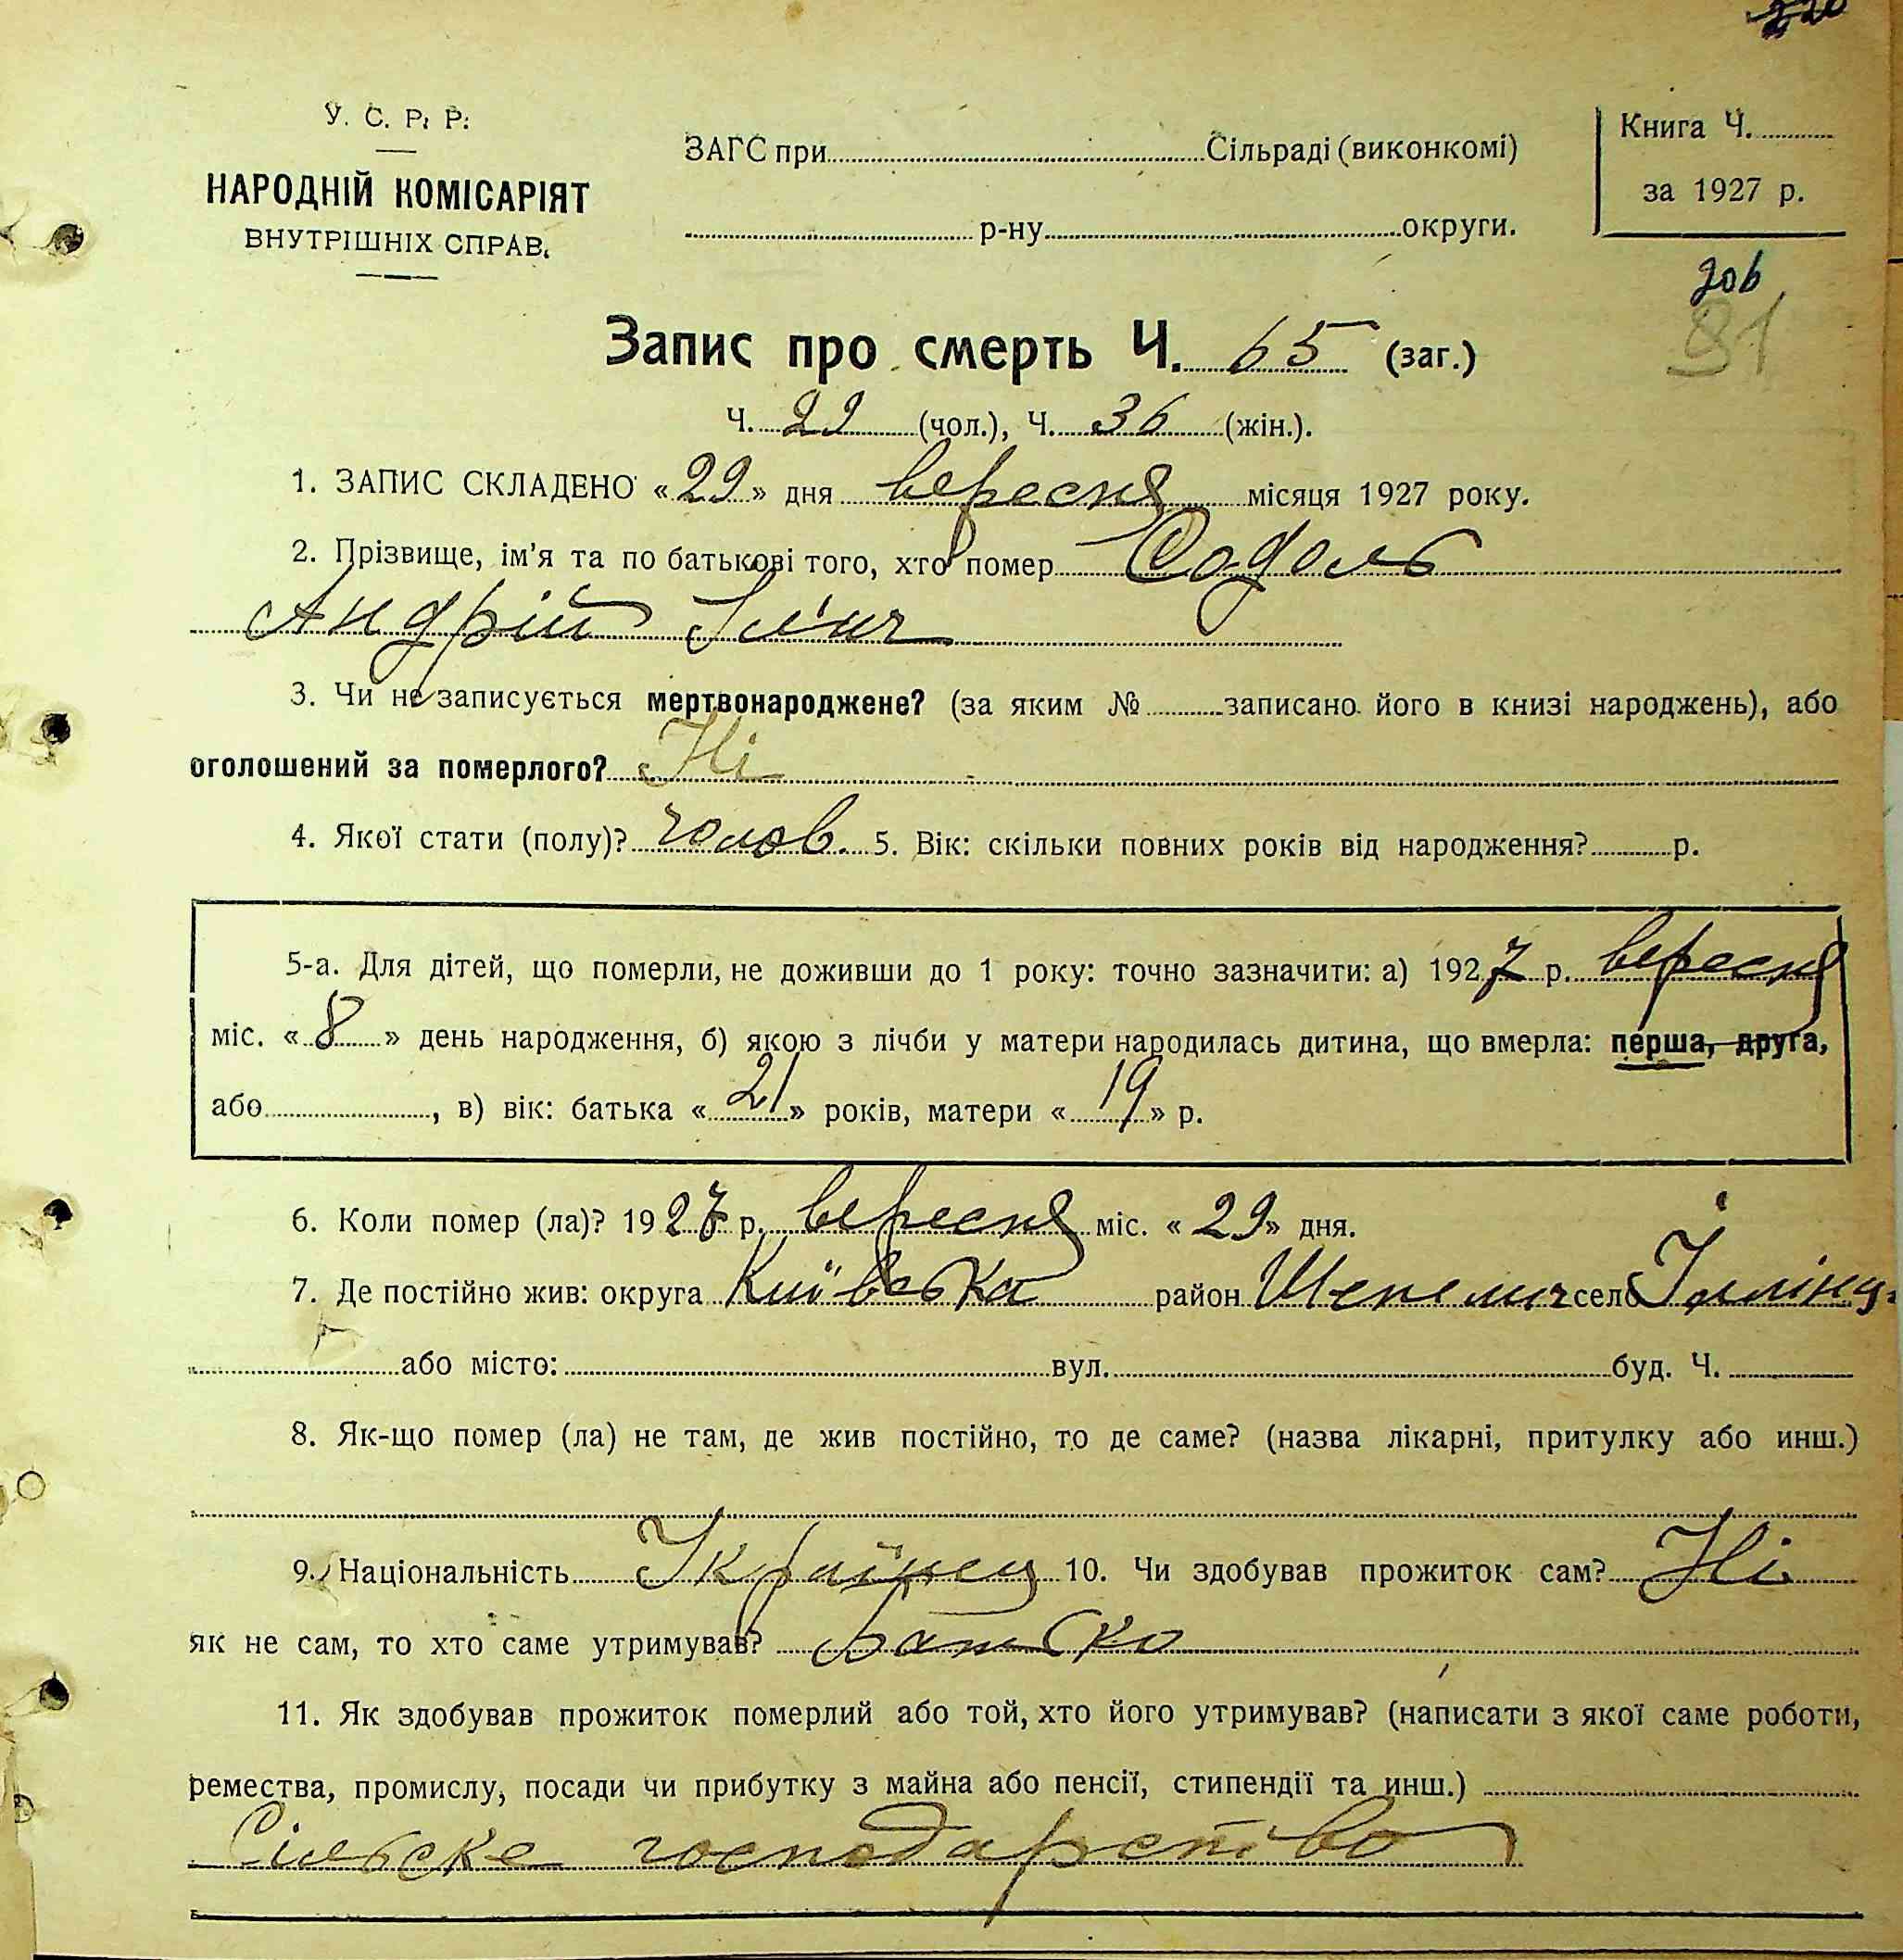 220
У. С. Р. Р.
НАРОДНІЙ КОМІСАРІЯТ
ВНУТРІШНІХ СПРАВ.
ЗАГС при Сільраді (виконкомі)
р-ну округи.
Книга Ч.
за 1927 р.
206
91
Запис про смерть Ч. 65 (заг.)
Ч. 29 (чол.), Ч. 36 (жін.).
1. ЗАПИС СКЛАДЕНО «29» дня вересня місяця 1927 року.
2. Прізвище, ім'я та по батькові того, хто помер Содоль
Андрій Ілич
3. Чи не записується мертвонароджене? (за яким № записано його в книзі народжень), або
оголошений за померлого? Ні
4. Якої стати (полу)? чолов. 5. Вік: скільки повних років від народження? р.
5-а. Для дітей, що померли, не доживши до 1 року: точно зазначити: а) 1927 р. вересня
міс. «8» день народження, б) якою з лічби у матери народилась дитина, що вмерла: перша, друга,
або , в) вік: батька «21» років, матери «19» р.
6. Коли помер (ла)? 1927 р. вересня міс. «29» дня.
7. Де постійно жив: округа Київська район Шепелич село Іллінц.
або місто: вул. буд. Ч.
8. Як-що помер (ла) не там, де жив постійно, то де саме? (назва лікарні, притулку або инш.)
9. Національність Українец 10. Чи здобував прожиток сам? Ні
як не сам, то хто саме утримував? Батько
11. Як здобував прожиток померлий або той, хто його утримував? (написати з якої саме роботи,
ремества, промислу, посади чи прибутку з майна або пенсії, стипендії та инш.)
Сільске господарство